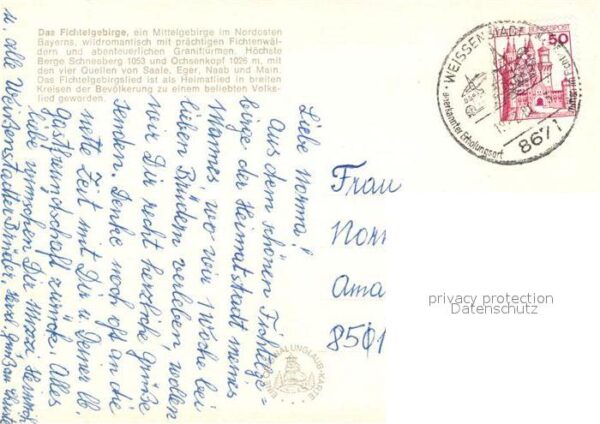 Das Fichtelgebirge, ein Mittelgebirge im Nordosten
Bayerns, wildromantisch mit prächtigen Fichtenwäl-
dern und abenteuerlichen Granittürmen. Höchste
Berge Schneeberg 1053 und Ochsenkopf 1026 m, mit
den vier Quellen von Saale, Eger, Naab und Main.
Das Fichtelgebirgslied ist als Heimatlied in breiten
Kreisen der Bevölkerung zu einem beliebten Volks-
lied geworden.
Liebe Norma!
Aus dem schönen Fichtelge-
birge der Heimatstadt meines
Mannes, wo wir 1 Woche bei
lieben Brüdern verleben wollen
wir Dir recht herzliche Grüße
senden. Denke noch oft an die
nette Zeit mit Dir u. Deiner lb.
Gastfreundschaft zurück. Alles
Liebe wünschen Dir
u. alle Weißenstadter Brüder
Frau
Norm
Ama
8501
50
BUNDESPOST
WEISSENSTADT
anerkannter Erholungsort
8671
privacy protection
Datenschutz